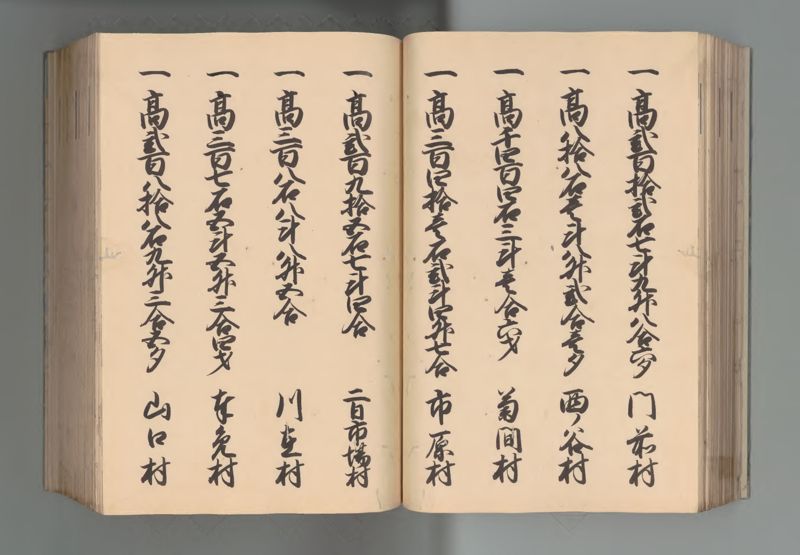 一高弐百拾弐石七斗九升八合六夕 門前村
一高八拾八石壱斗八升弐合壱夕 西ノ谷村
一高千四百四石三斗壱合六才 菊間村
一高三百四拾壱石弐斗四升七合 市原村
一高弐百九拾五石七斗四合 二日市場村
一高三百八石八斗八升五合 川在村
一高三百七石五斗五升三合四才 奉免村
一高弐百八拾八石九升三合五夕 山口村